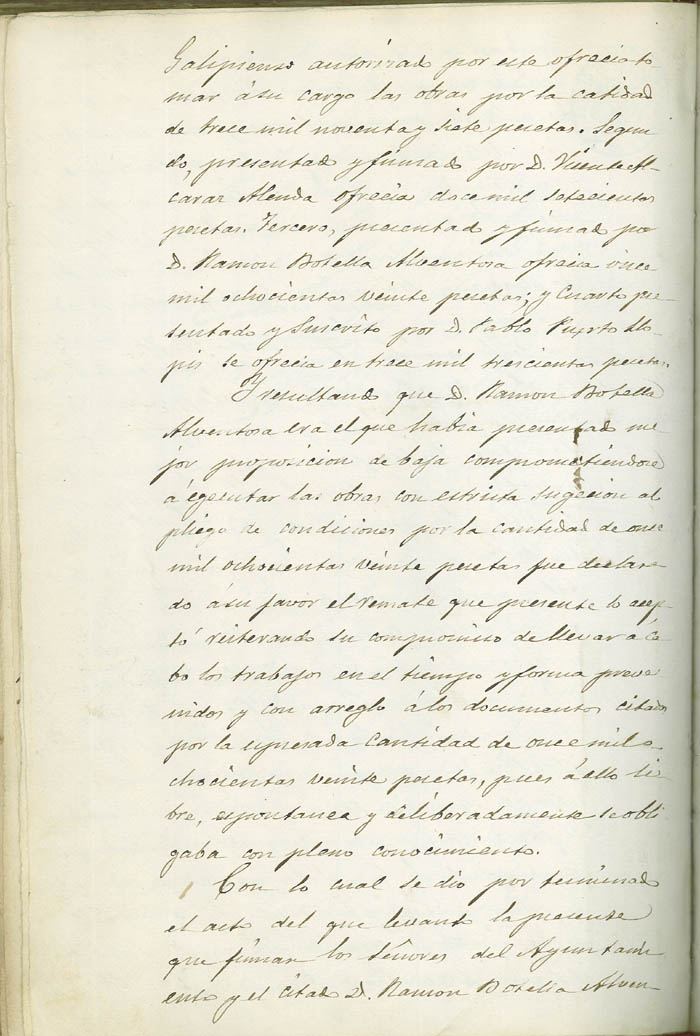 Galipienso autorizado por este ofrecia to
mar á su cargo las obras por la catidad
de trece mil noventa y siete pesetas. Segun
do, presentado y firmado por D. Vicente Al-
caraz Alenda ofrecia doce mil setecientas
pesetas. Tercero, presentado y firmado por
D. Ramon Botella Alventosa ofrecia once
mil ochocientas veinte pesetas; y Cuarto pre
sentado y suscrito por D. Pablo Puerto Llo-
pis se ofrecia en trece mil trescientas pesetas.
Y resultando que D. Ramon Botella
Alventosa era el que habia presentado me
jor proposicion de baja comprometiendose
á egecutar las obras con estricta sugecion al
pliego de condiciones por la cantidad de once
mil ochocientas veinte pesetas fue declara-
do á su favor el remate que presente lo acep
tó reiterando su compromiso de llevar á ca
bo los trabajos en el tiempo y forma preve
nidos y con arreglo á los documentos citados
por la espresada cantidad de once mil o-
chocientas veinte pesetas, pues á ello li
bre, espontanea y deliberadamente se obli
gaba con pleno conocimiento.
Con lo cual se dio por terminado
el acto del que levanto la presente
que firman los Señores del Ayuntami
ento y el citado D. Ramon Botella Alven-